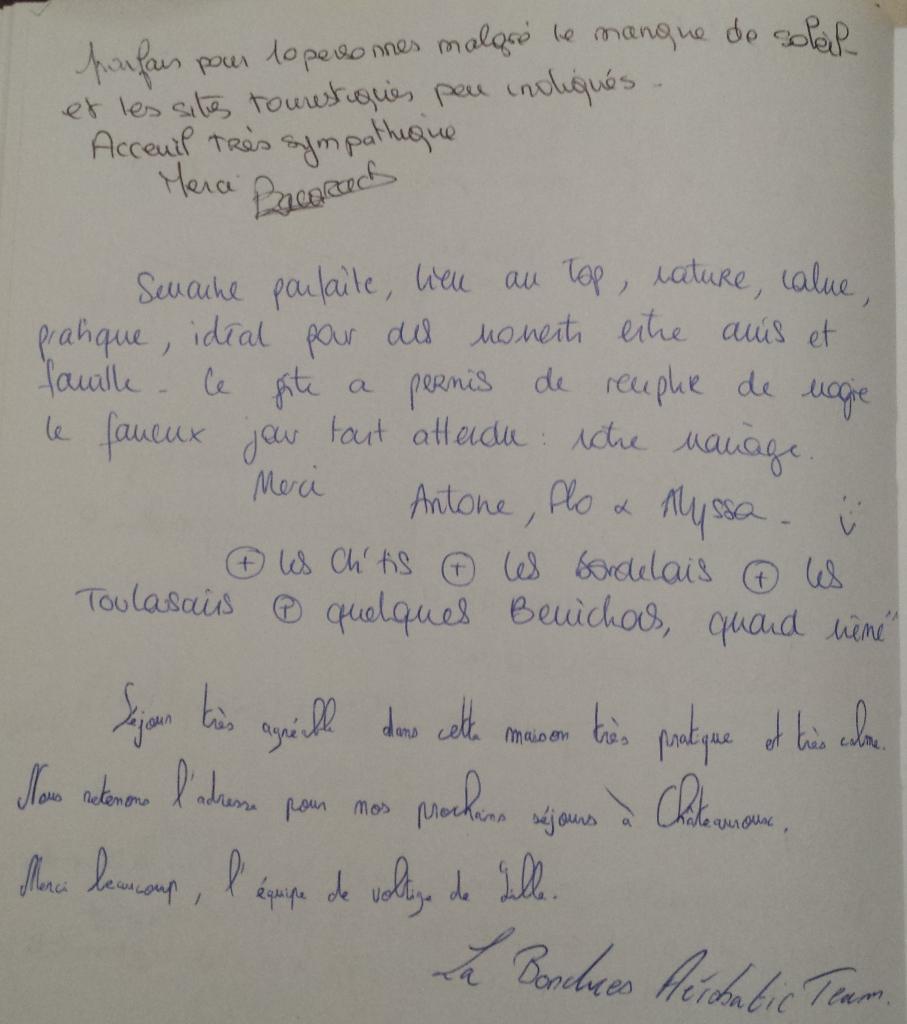 parfais pour 10 personnes malgré le manque de soleil
et les sites touristiques peu indiqués.
Acceuil très sympathique
Merci
Semaine parfaite, lieu au top, nature, calme,
pratique, idéal pour des moments entre amis et
famille. Ce gîte a permis de remplir de magie
le fameux jour tant attendu : notre mariage.
Merci Antoine, Flo & Alyssa -
+ les Ch'tis + les Bordelais + les
Toulousains + quelques Berrichons, quand même"
Séjour très agréable dans cette maison très pratique et très calme.
Nous retenons l'adresse pour nos prochains séjours à Châteauroux.
Merci beaucoup, l'équipe de voltige de Lille.
La Bondues Aérobatic Team.